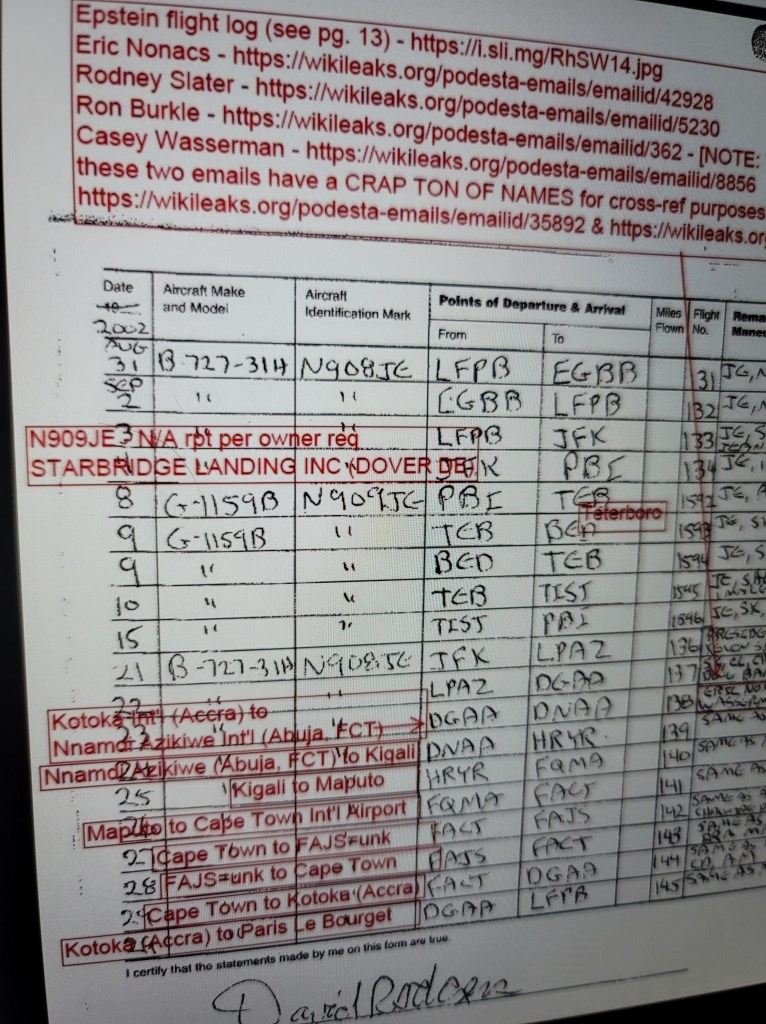 Epstein flight log (see pg. 13) - https://i.sli.mg/RhSW14.jpg
Eric Nonacs - https://wikileaks.org/podesta-emails/emailid/42928
Rodney Slater - https://wikileaks.org/podesta-emails/emailid/5230
Ron Burkle - https://wikileaks.org/podesta-emails/emailid/362 - [NOTE:
Casey Wasserman - https://wikileaks.org/podesta-emails/emailid/8856
these two emails have a CRAP TON OF NAMES for cross-ref purposes
https://wikileaks.org/podesta-emails/emailid/35892 & https://wikileaks.or
Date Aircraft Make and Model Aircraft Identification Mark Points of Departure & Arrival Miles Flown Flight No. Rema
From To Maneu
2002
AUG
31 B-727-31H N908JE LFPB EGBB 131 JE,
SEP
2 " " EGBB LFPB 132 JE,
3 LFPB JFK 133 JE, S
N909JE - N/A rpt per owner req
STARBRIDGE LANDING INC (DOVER DE)
4 " JFK PBI 134 JE,
8 G-1159B N909JE PBI TEB 1592 JE,
Teterboro
9 G-1159B " TEB BED 1593 JE, SK
9 " " BED TEB 1594 JE, S
10 " " TEB TIST 1595 JE, SK
15 " " TIST PBI 1596 JE, SK,
21 B-727-31H N908JE JFK LPAZ 136
22 " " LPAZ DGAA 137
23 " DGAA DNAA 138
Kotoka Int'l (Accra) to
Nnamdi Azikiwe Int'l (Abuja, FCT)
24 DNAA HRYR 139 SAME AS
Nnamdi Azikiwe (Abuja, FCT) to Kigali
25 " HRYR FQMA 140 SAME AS
Kigali to Maputo
26 FQMA FACT 141 SAME AS
Maputo to Cape Town Int'l Airport
27 FACT FAJS 142 SAME AS
Cape Town to FAJS=unk
28 FAJS FACT 143 SAME AS
FAJS=unk to Cape Town
29 FACT DGAA 144 SAME AS
Cape Town to Kotoka (Accra)
DGAA LFPB 145 SAME AS
Kotoka (Accra) to Paris Le Bourget
I certify that the statements made by me on this form are true.
David Rodgers